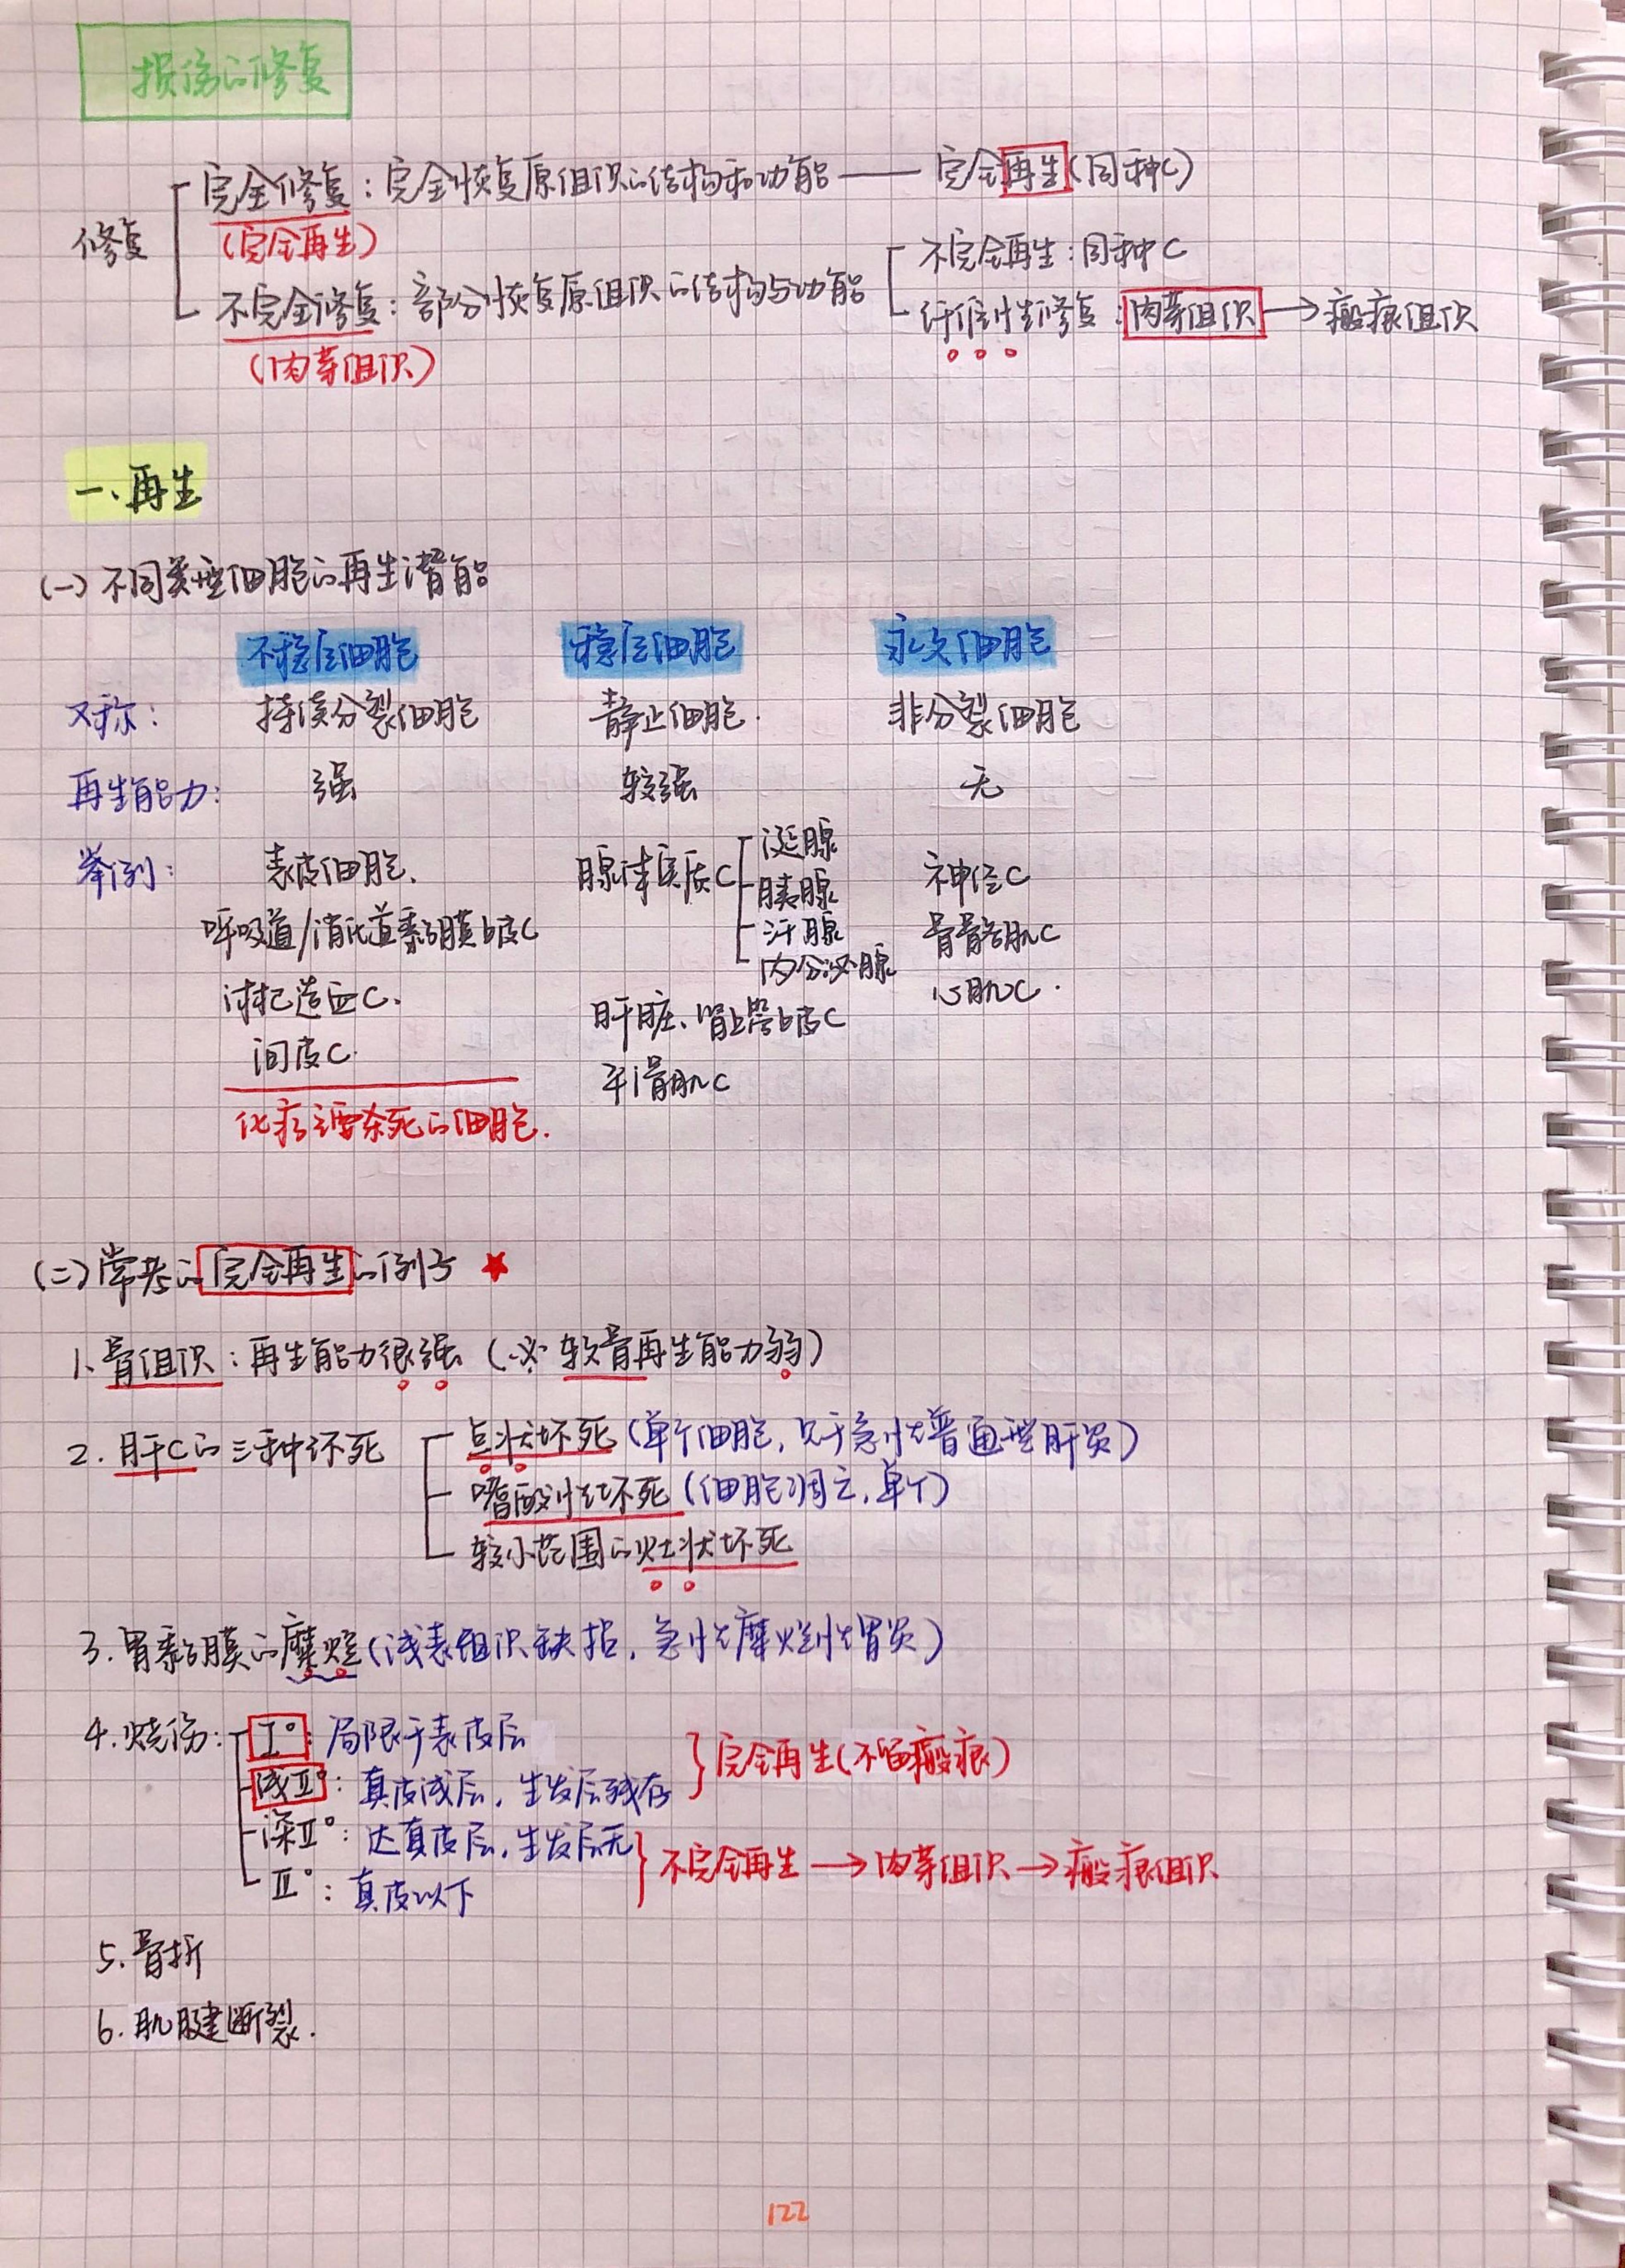 损伤的修复
完全修复：完全恢复原组织的结构和功能——完全再生(同种C)
修复
(完全再生)
不完全再生：同种C
不完全修复：部分恢复原组织的结构与功能
纤维性修复：肉芽组织→瘢痕组织
(肉芽组织)
一、再生
(一)不同类型细胞的再生潜能
不稳定细胞 稳定细胞 永久细胞
又称： 持续分裂细胞 静止细胞. 非分裂细胞
再生能力： 强 较强 无
举例： 表皮细胞、 腺体实质C 涎腺 胰腺 汗腺 内分泌腺 神经C
呼吸道/消化道黏膜上皮C 骨骼肌C
淋巴造血C、 心肌C.
肝脏、肾小管上皮C
间皮C.
平滑肌C
化疗主要杀死的细胞.
(二)常考的完全再生的例子 ★
1、骨组织：再生能力很强（※软骨再生能力弱）
2. 肝C的三种坏死 点状坏死（单个细胞，见于急性普通型肝炎）
嗜酸性坏死（细胞凋亡，单个）
较小范围的灶状坏死
3.胃黏膜的糜烂(浅表组织缺损，急性糜烂性胃炎)
4.烧伤： I°：局限于表皮层
浅II°：真皮浅层，生发层残存 }完全再生(不留瘢痕)
深II°：达真皮层，生发层无
III°：真皮以下 }不完全再生→肉芽组织→瘢痕组织
5.骨折
6.肌腱断裂.
122